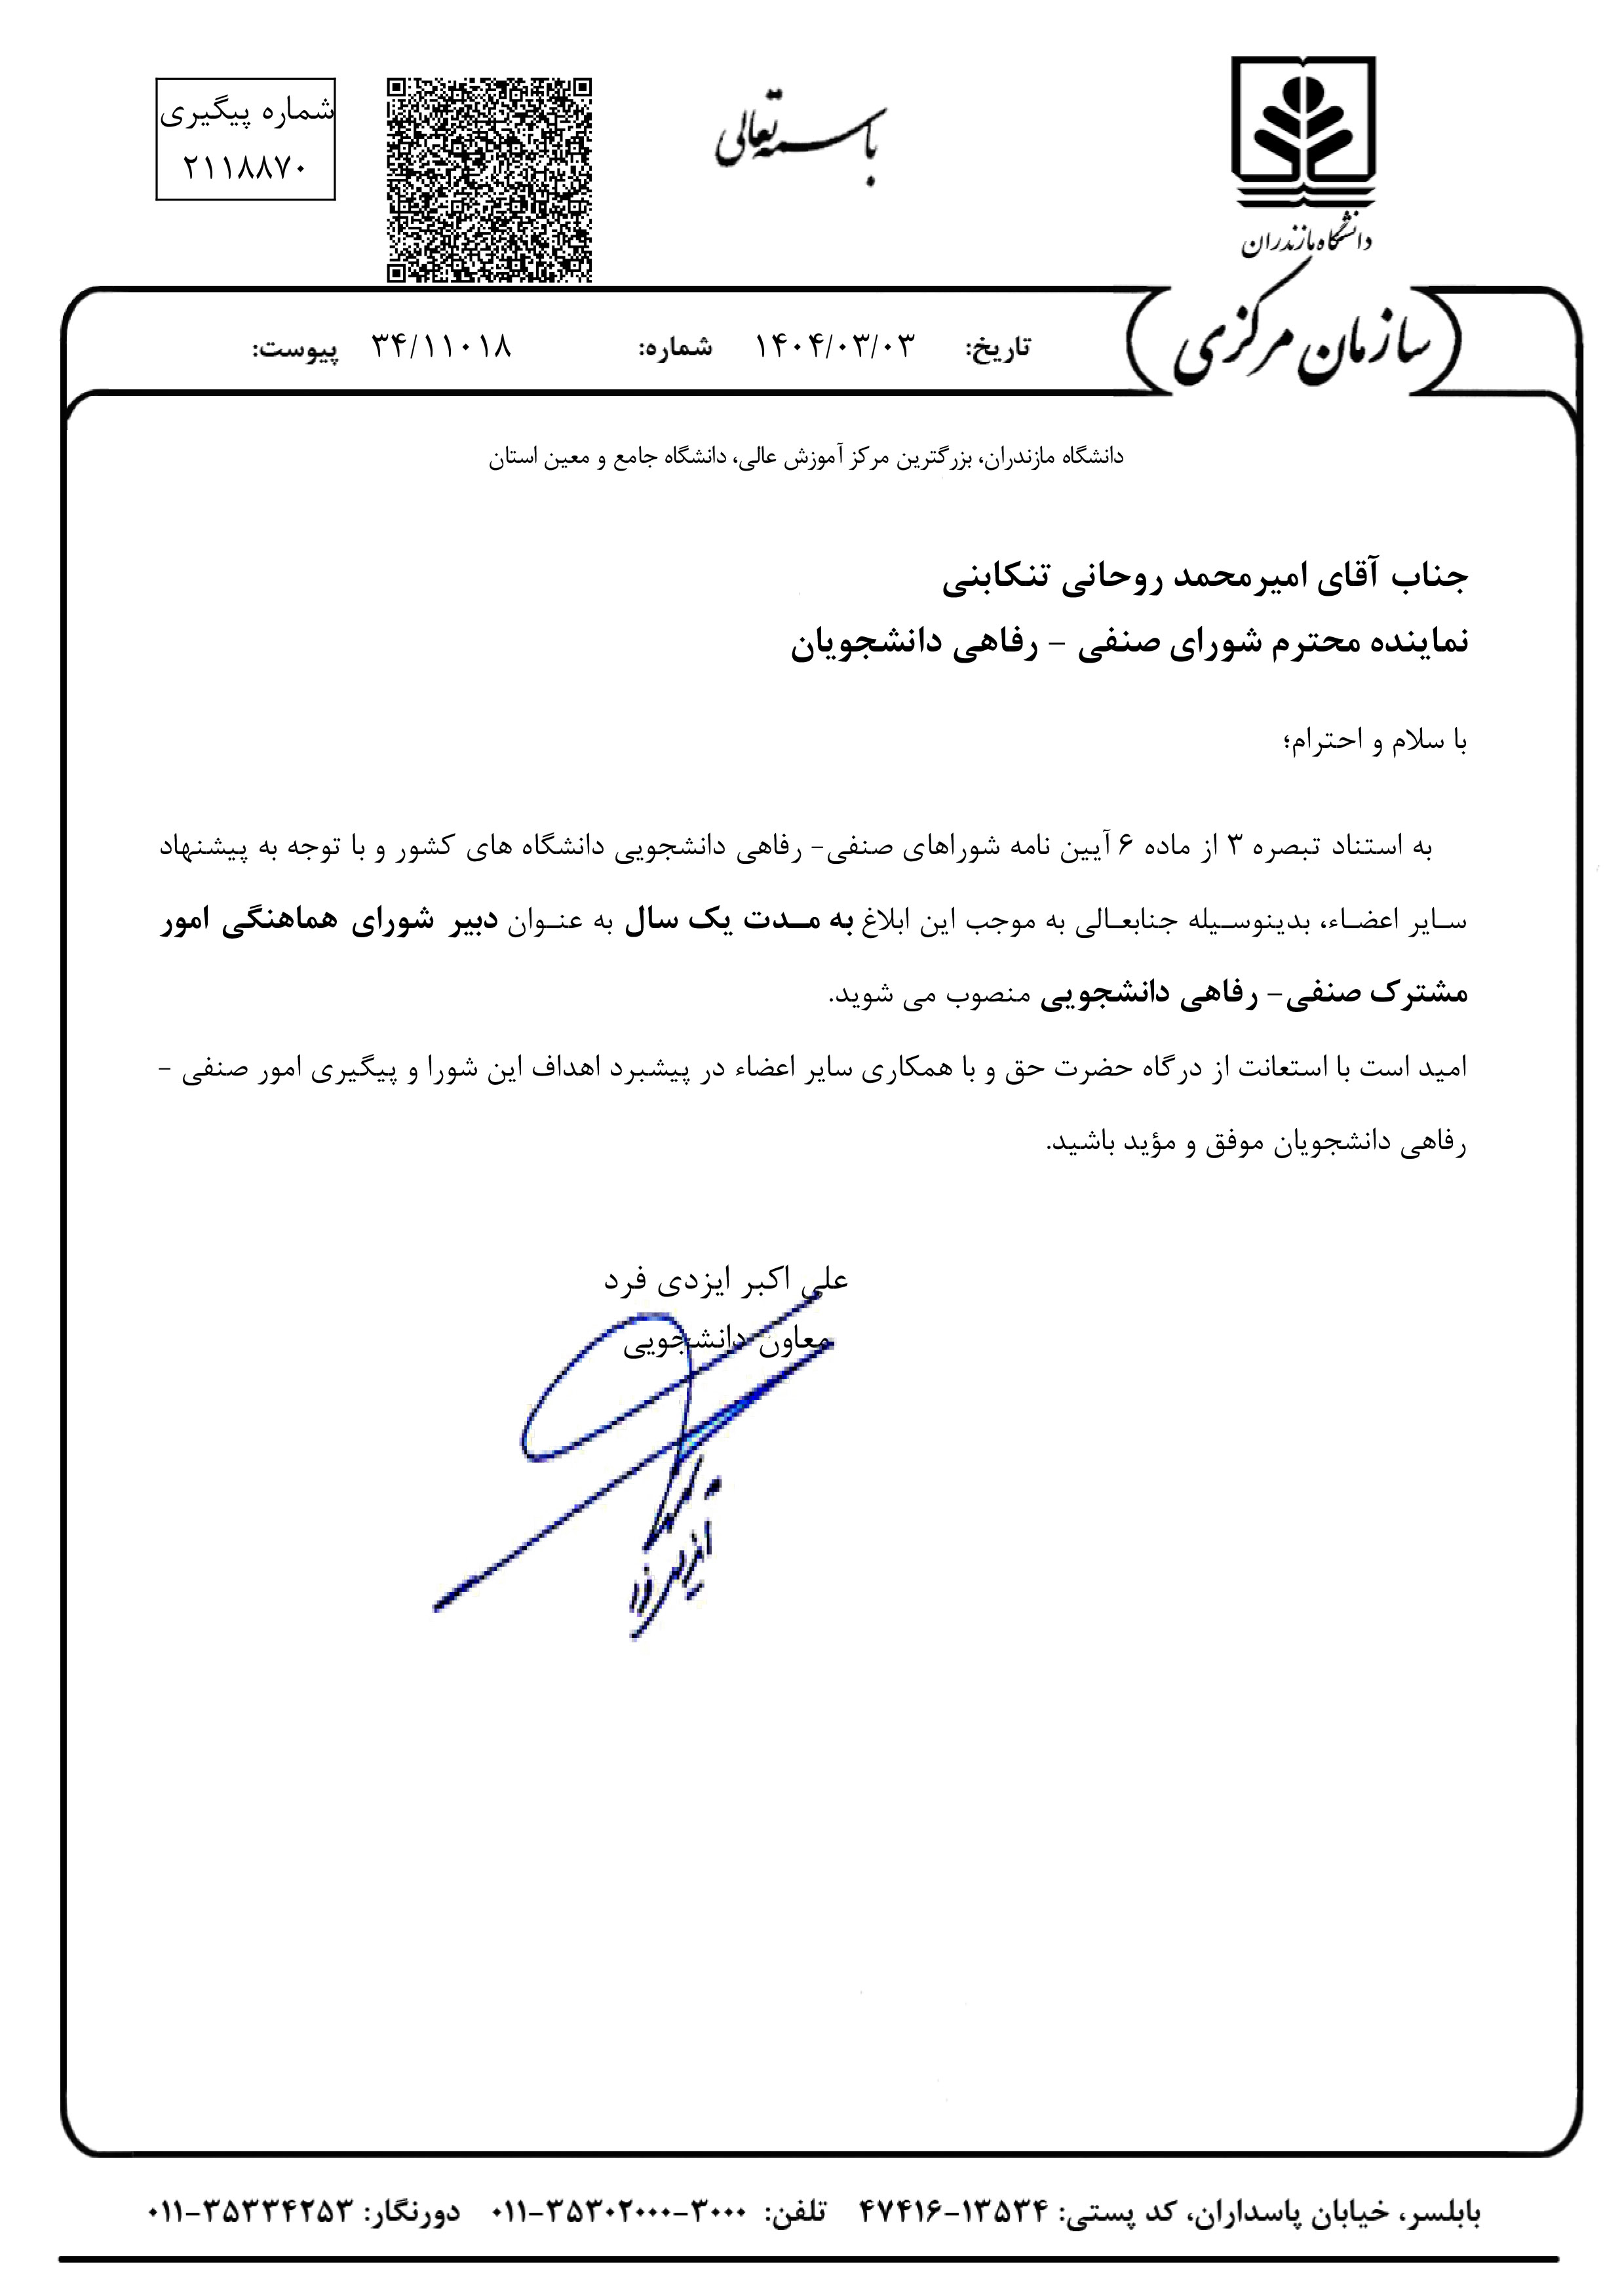 باسمه تعالی
شماره پیگیری
۲۱۱۸۸۷۰
دانشگاه مازندران
سازمان مرکزی
تاریخ: ۱۴۰۴/۰۳/۰۳ شماره: ۳۴/۱۱۰۱۸ پیوست:
دانشگاه مازندران، بزرگترین مرکز آموزش عالی، دانشگاه جامع و معین استان
جناب آقای امیرمحمد روحانی تنکابنی
نماینده محترم شورای صنفی – رفاهی دانشجویان
با سلام و احترام؛
به استناد تبصره ۳ از ماده ۶ آیین نامه شوراهای صنفی- رفاهی دانشجویی دانشگاه های کشور و با توجه به پیشنهاد
سـایر اعضـاء، بدینوسـیله جنابعـالی به موجب این ابلاغ به مـدت یک سال به عنـوان دبیر شورای هماهنگی امور
مشترک صنفی- رفاهی دانشجویی منصوب می شوید.
امید است با استعانت از درگاه حضرت حق و با همکاری سایر اعضاء در پیشبرد اهداف این شورا و پیگیری امور صنفی -
رفاهی دانشجویان موفق و مؤید باشید.
علی اکبر ایزدی فرد
معاون دانشجویی
بابلسر، خیابان پاسداران، کد پستی: ۱۳۵۳۴-۴۷۴۱۶ تلفن: ۳۰۰۰-۳۵۳۰۲۰۰۰-۰۱۱ دورنگار: ۳۵۳۳۴۲۵۳-۰۱۱